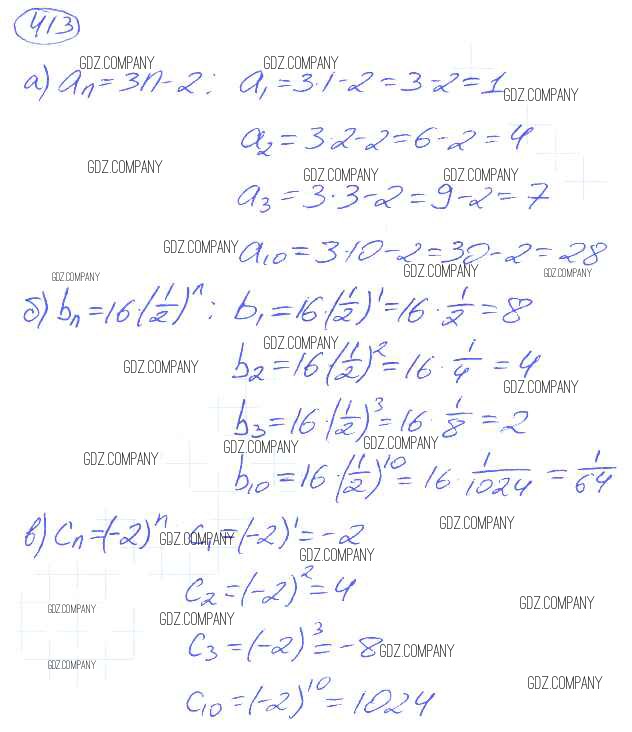 413
GDZ.COMPANY GDZ.COMPANY
а) aₙ = 3n - 2 : a₁ = 3·1 - 2 = 3 - 2 = 1
GDZ.COMPANY
a₂ = 3·2 - 2 = 6 - 2 = 4
GDZ.COMPANY GDZ.COMPANY GDZ.COMPANY
a₃ = 3·3 - 2 = 9 - 2 = 7
GDZ.COMPANY
a₁₀ = 3·10 - 2 = 30 - 2 = 28
GDZ.COMPANY GDZ.COMPANY GDZ.COMPANY
б) bₙ = 16·(1/2)ⁿ : b₁ = 16·(1/2)¹ = 16·1/2 = 8
GDZ.COMPANY
b₂ = 16·(1/2)² = 16·1/4 = 4
GDZ.COMPANY GDZ.COMPANY
b₃ = 16·(1/2)³ = 16·1/8 = 2
GDZ.COMPANY GDZ.COMPANY GDZ.COMPANY
b₁₀ = 16·(1/2)¹⁰ = 16·1/1024 = 1/64
GDZ.COMPANY
в) cₙ = (-2)ⁿ c₁ = (-2)¹ = -2
GDZ.COMPANY GDZ.COMPANY
c₂ = (-2)² = 4
GDZ.COMPANY GDZ.COMPANY GDZ.COMPANY
c₃ = (-2)³ = -8
GDZ.COMPANY GDZ.COMPANY GDZ.COMPANY
c₁₀ = (-2)¹⁰ = 1024